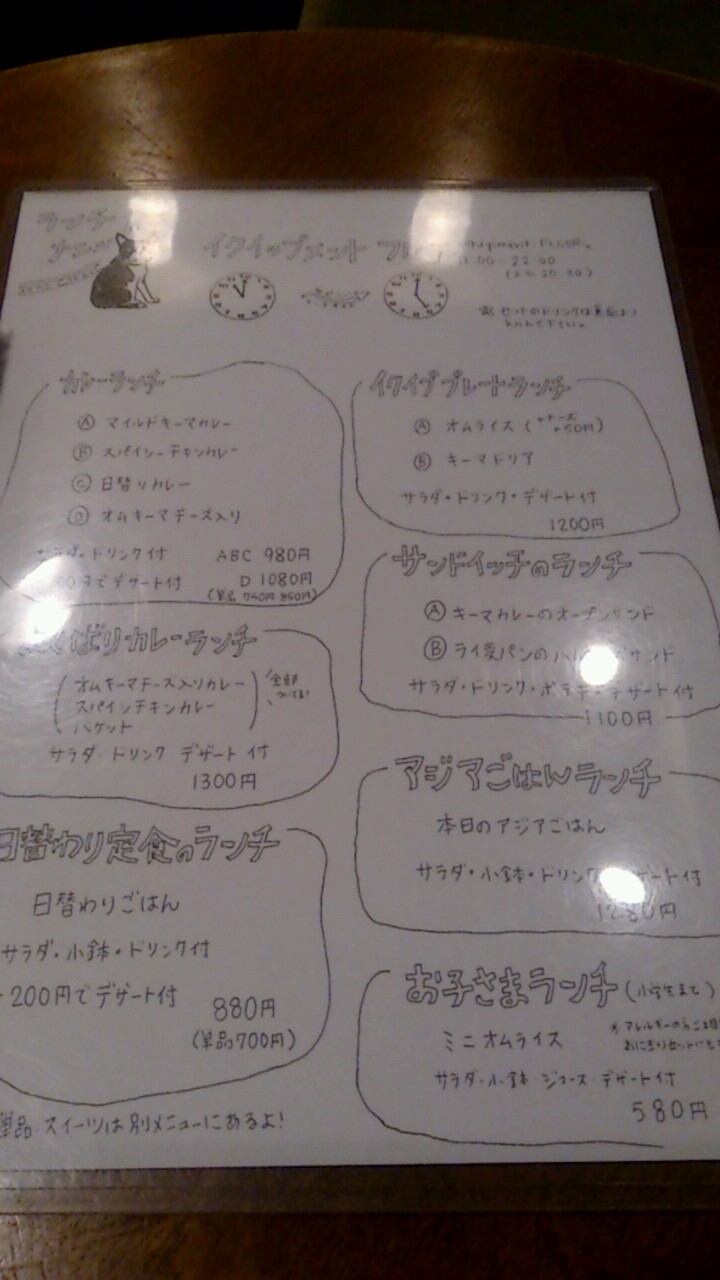 ランチ
イクイップメント フロア
11:00~22:00
カレーランチ
Ⓐ マイルドキーマカレー
Ⓑ スパイシーチキンカレー
Ⓒ 日替りカレー
Ⓓ オムキーマチーズ入り
サラダ・ドリンク付 ABC 980円
円でデザート付 D 1080円
(単品 750円 850円)
ばりカレーランチ
オムキーマチーズ入りカレー
スパイシチキンカレー
バケット
サラダ・ドリンク デザート付
1300円
日替わり定食のランチ
日替わりごはん
サラダ・小鉢・ドリンク付
200円でデザート付 880円
(単品700円)
単品・スイーツは別メニューにあるよ!
イクイププレートランチ
Ⓐ オムライス (+チーズ +50円)
Ⓑ キーマドリア
サラダ・ドリンク・デザート付
1200円
サンドイッチのランチ
Ⓐ キーマカレーのオープンサンド
Ⓑ ライ麦パンの サンド
サラダ・ドリンク・ポテチ・デザート付
1100円
アジアごはんランチ
本日のアジアごはん
サラダ・小鉢・ドリンク デザート付
1280円
お子さまランチ (小学生まで)
ミニオムライス
サラダ・小鉢・ジュース・デザート付
580円